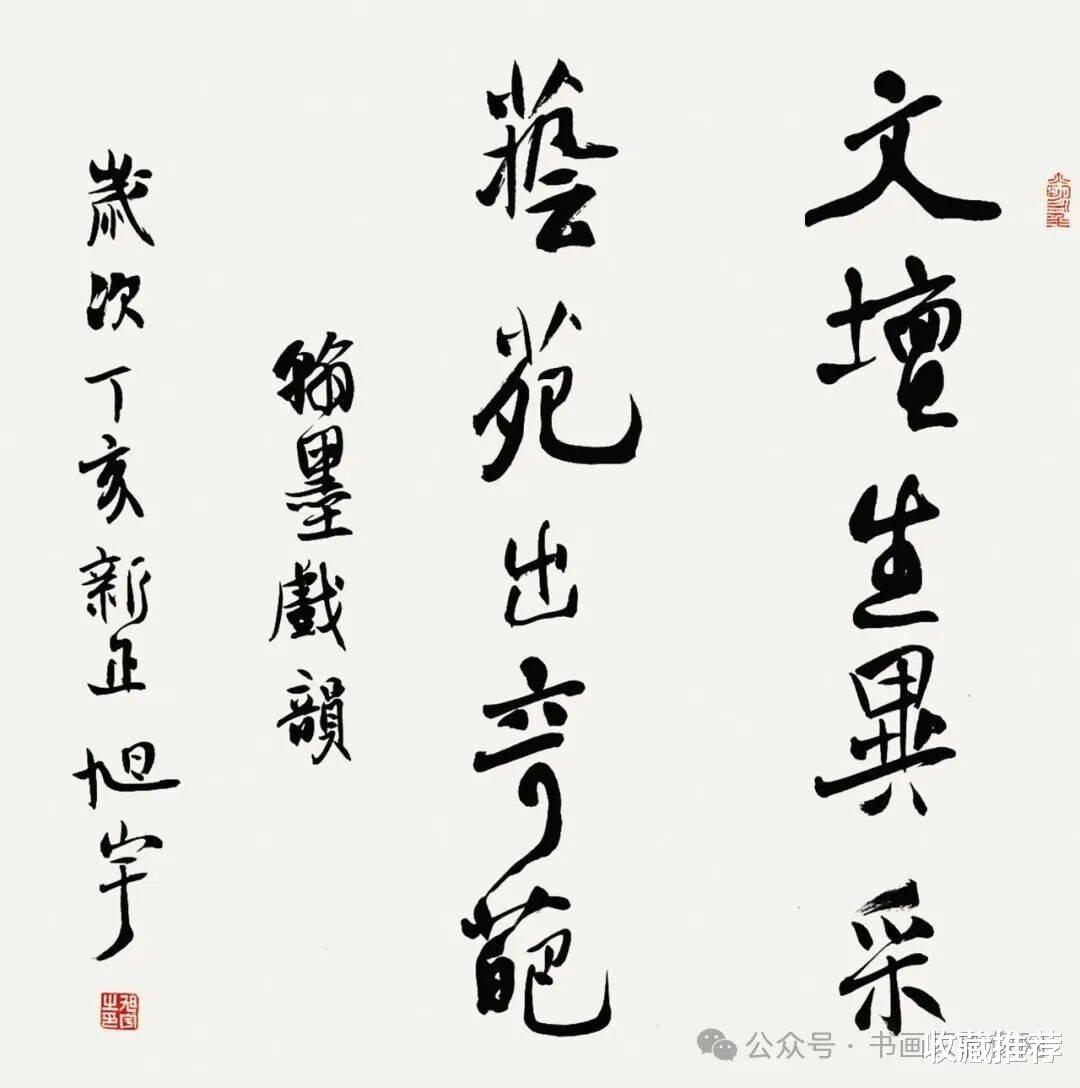 文壇生異采
藝苑出奇葩
翰墨戲韻
歲次丁亥新正 旭宇
旭宇之印
公众号·书画
收藏推荐